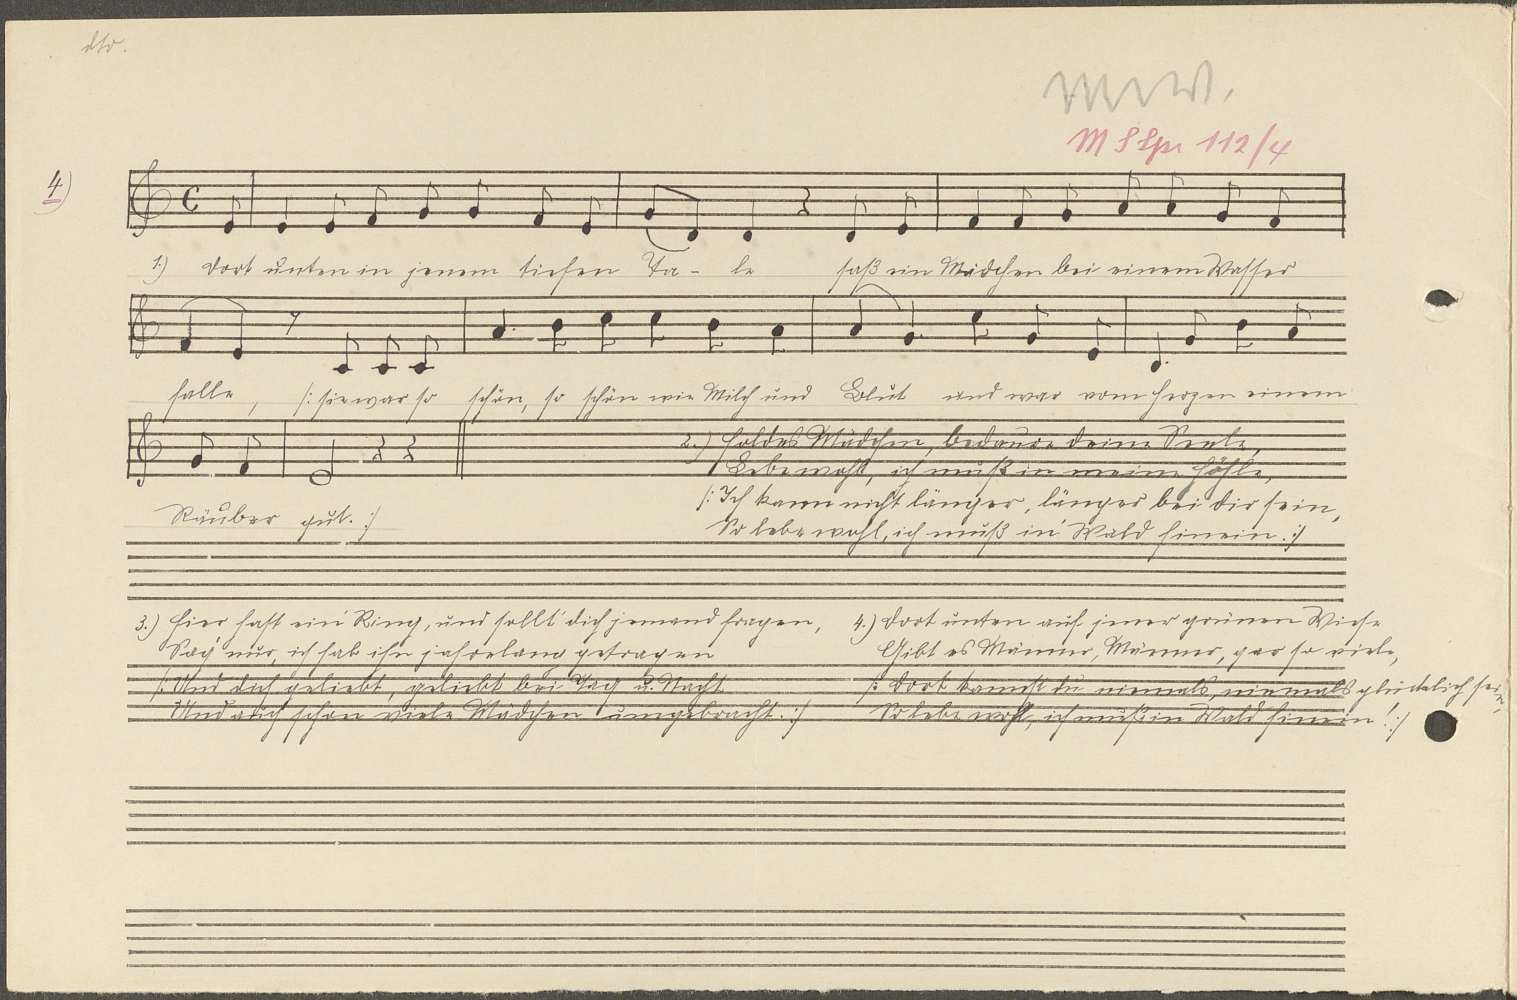 dto.
M S Spr 112/4
4)
1.) Dort unten in jenem tiefen Ta- le saß ein Mädchen bei einem Wasser
falle, /: sie war so schön, so schön wie Milch und Blut und war vom Herzen einem
Räuber gut. :/
2.) Holdes Mädchen, bedaure deine Seele,
Lebe wohl, ich muß in meine Höhle,
/: Ich kann nicht länger, länger bei dir sein,
So lebe wohl, ich muß in' Wald hinein. :/
3.) Hier hast ein' Ring, und sollt' dich jemand fragen,
Sag' nur, ich hab ihn jahrelang getragen
/: Und dich geliebt, geliebt bei Tag u. Nacht
Und auch schon viele Mädchen umgebracht. :/
4.) Dort unten auf jener grünen Wiese
Gibt es Männer, Männer, gar so viele,
/: Dort kannst du niemals, niemals glücklich sein,
So lebe wohl, ich muß in Wald hinein! :/